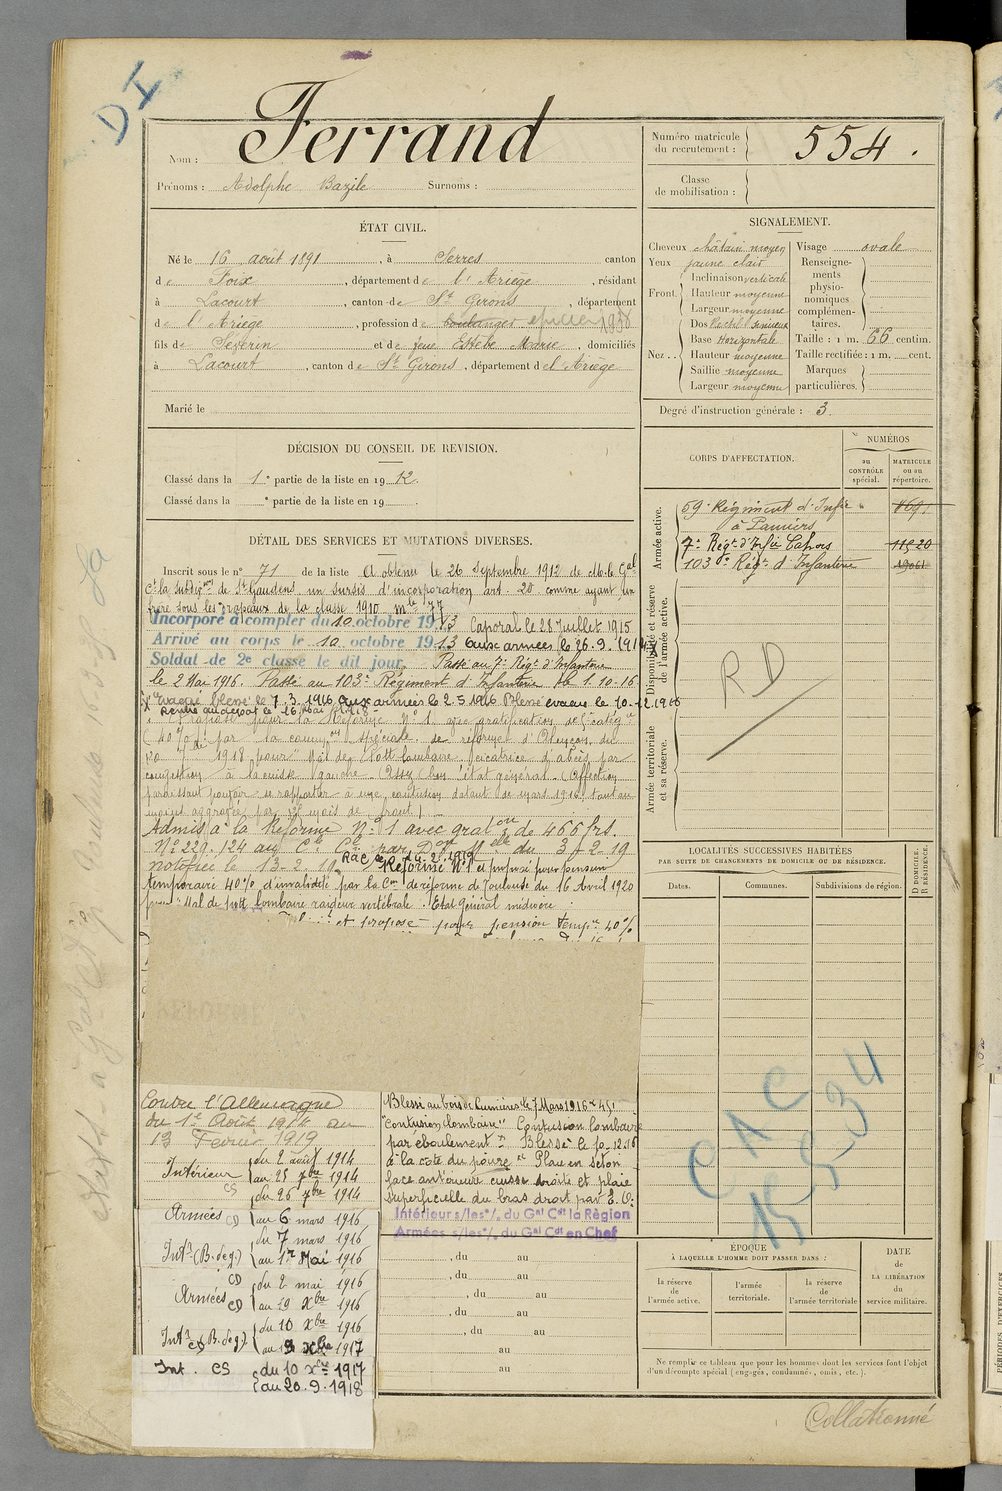 DI
Nom : Ferrand
Prénoms : Adolphe Bazile Surnoms :
Numéro matricule du recrutement : 554.
Classe de mobilisation :
ÉTAT CIVIL.
Né le 16 août 1891, à Serres canton
de Foix, département de l'Ariège, résidant
à Lacourt, canton de St Girons, département
de l'Ariège, profession de boulanger 1938
fils de Séverin et de feue Estebe Marie, domiciliés
à Lacourt, canton de St Girons, département de l'Ariège
Marié le
SIGNALEMENT.
Cheveux châtain moyen
Yeux jaune clair
Front Inclinaison verticale
Hauteur moyenne
Largeur moyenne
Nez Dos Rectil. sinueux
Base Horizontale
Hauteur moyenne
Saillie moyenne
Largeur moyenne
Visage ovale
Renseignements physionomiques complémentaires.
Taille : 1 m. 66 centim.
Taille rectifiée : 1 m. cent.
Marques particulières.
Degré d'instruction générale : 3.
DÉCISION DU CONSEIL DE REVISION.
Classé dans la 1e partie de la liste en 1912.
Classé dans la e partie de la liste en 19
CORPS D'AFFECTATION.
NUMÉROS
au CONTRÔLE spécial.
MATRICULE ou au répertoire.
Armée active.
59e Régiment d'Infie
à Pamiers
7e Régt d'Infie Cahors 11520
103e Régt d'Infanterie
Disponibilité et réserve de l'armée active.
RD
Armée territoriale et sa réserve.
DÉTAIL DES SERVICES ET MUTATIONS DIVERSES.
Inscrit sous le n° 71 de la liste A obtenu le 26 Septembre 1912 de M. le Gal
Ct la Subdon de St Gaudens un sursis d'incorporation art. 20 comme ayant un
frère sous les drapeaux de la classe 1910 mle 77
Incorporé à compter du 10 octobre 1913 Caporal le 28 Juillet 1915
Arrivé au corps le 10 octobre 1913 Aux armées le 26.9.1914
Soldat de 2e classe le dit jour. Passé au 7e Régt d'Infanterie
le 2 Mai 1916. Passé au 103e Régiment d'Infanterie le 1.10.16
Evacué blessé le 7.3.1916 aux armées le 2.5.1916 Blessé évacué le 10.12.1916
Rentré au dépôt le 16 Mai 1918
Proposé pour la Réforme N° 1 avec gratification de catégie
(40%) par la commion spéciale de réforme d'Alençon du
1918 pour "Mal de Pott lombaire, cicatrice d'abcès par
congestion à la cuisse gauche. Assez bon état général. (Affection
paraissant pouvoir se rapporter à une contusion datant de mars 1916, tout au
moins aggravée par mois de front.)
Admis à la Réforme N° 1 avec graton de 466 frs.
N° 229.124 au du 3-2-19
notifiée le 13-2-19 R.d.C. le 24.2.1919
Réformé N° 1 et proposé pour pension
temporaire 40% d'invalidité par la Con de réforme de Toulouse du 16 Avril 1920
pour "Mal de pott lombaire raideur vertébrale. Etat Général médiocre.
et proposé pour pension tempre 40%
Contre l'Allemagne
du 1er Août 1914 au
13 Février 1919
Intérieur CS du 2 août 1914
au 25 7bre 1914
Armées CD du 26 7bre 1914
au 6 mars 1916
Intr (B. de g.) CD du 7 mars 1916
au 1er Mai 1916
Armées CD du 2 mai 1916
au 9 Xbre 1916
Intr (B. de g.) CD du 10 Xbre 1916
au 9 Xbre 1917
Int. CS du 10 Xbre 1917
au 20.9.1918
Blessé au bois de Cumières le 7 Mars 1916
"Contusion lombaire" Contusion lombaire
par éboulement. Blessé le 10-12-16
à la côte du poivre. Plaie en séton
face antérieure cuisse droite et plaie
superficielle du bras droit par E.O.
Intérieur s/les °/. du Gal Cdt la Région
Armées s/les °/. du Gal Cdt en Chef
, du au
, du au
, du au
, du au
, du au
au
au
LOCALITÉS SUCCESSIVES HABITÉES
PAR SUITE DE CHANGEMENTS DE DOMICILE OU DE RÉSIDENCE.
Dates.
Communes.
Subdivisions de région.
D DOMICILE. R RÉSIDENCE.
CAC
15534
ÉPOQUE
À LAQUELLE L'HOMME DOIT PASSER DANS :
la réserve de l'armée active.
l'armée territoriale.
la réserve de l'armée territoriale
DATE de LA LIBÉRATION du service militaire.
Ne remplir ce tableau que pour les hommes dont les services font l'objet
d'un décompte spécial (engagés, condamnés, omis, etc.).
Collationné
PÉRIODES D'EXERCICES